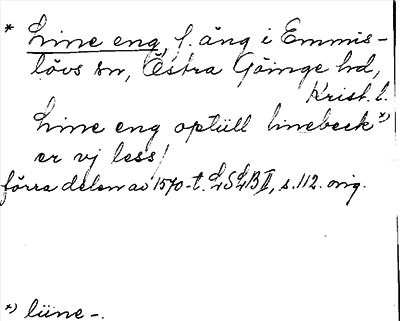 * Line eng, f. äng i Emmis-
lövs sn, Östra Göinge hd,
Krist. l.
Line eng optill linebeck *)
er vj less/
förra delen av 1570-t. LSLB II, s. 112. orig.
*) lüne-.